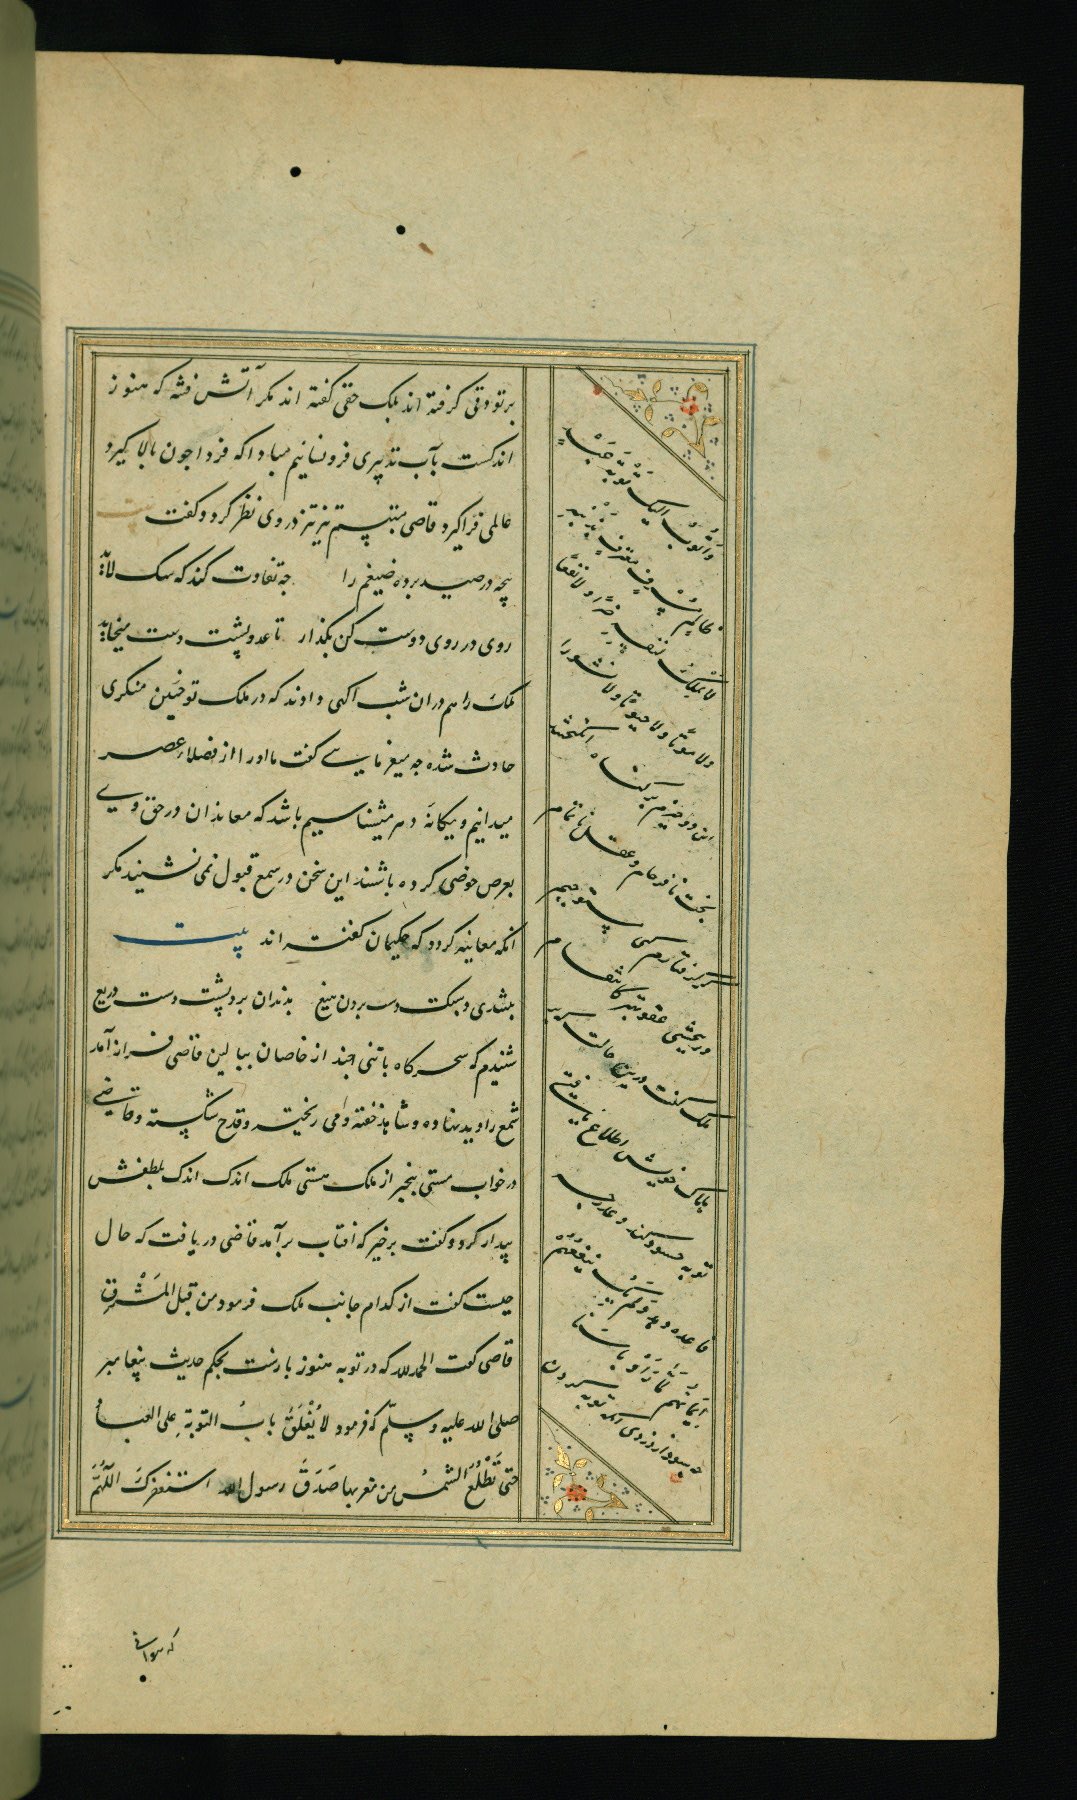 بر تو دقی گرفته اند بلک حقی گفته اند مکر آتش فتنه که هنوز
اندکست بآب تدبیری فرو نشانیم مبادا که فردا چون بالا گیرد
عالمی فرا گیرد قاضی متبسم تیز تیز در وی نظر کرد و گفت بیت
پنجه در صید برده ضیغم را چه تفاوت کند که سک لاید
روی در روی دوست کن بگذار تا عدو پشت دست میخاید
ملک را هم در ان شب اکهی دادند که در ملک تو چنین منکری
حادث شده چه میفرمایی گفت ما او را از فضلاء عصر
میدانیم و یگانه دهر میشناسیم باشد که معاندان در حق وی
بغرض خوضی کرده باشند این سخن در سمع قبول نمی نشیند مکر
انکه معاینه کردد که حکیمان گفته اند بیت
بتندی و سبک دست بردن بتیغ بدندان برد پشت دست دریغ
شنیدم که سحرکاه با تنی چند از خاصان ببالین قاضی فراز آمد
شمع را دید نهاده و شاهد خفته و می ریخته و قدح شکسته و قاضی
در خواب مستی بیخبر از ملک هستی ملک اندک اندک بلطفش
بیدار کرد و گفت برخیز که افتاب برآمد قاضی دریافت که حال
چیست گفت از کدام جانب ملک فرمود من قبل المشرق
قاضی گفت الحمد لله که در توبه هنوز بازست بحکم حدیث پیغامبر
صلی الله علیه وسلم که فرمود لا یُغْلَقُ بابُ التوبة علی العباد
حتی تَطْلُعَ الشمسُ من مغربها صَدَقَ رسول الله استغفرک اللهمَّ
وَاَتُوبُ الیک توبة
لا یملک لنفسه ضرّا ولا نفعًا
ولا موتًا ولا حیوتًا ولا نشورا
این دو چیزم بر گناه انگیختند
بخت نافرجام و عقل ناتمام
گر گرفتارم کنی مستوجبم
ور ببخشی عفو بهتر کانتقام
ملک گفت درین حالت که بر
هلاک خویش اطلاع یافتی
توبه سود نکند
فائده ندهد ولم یک ینفعهم
ایمانهم لمّا رأوا بأسنا
چه سود از دزدی انکه توبه کردن
که نتوانی